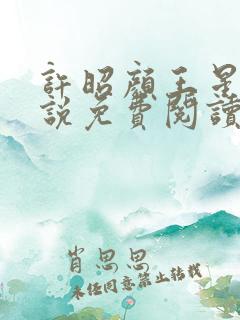 許昭顏王星
說免費閱讀
肖思思
未经同意禁止转载